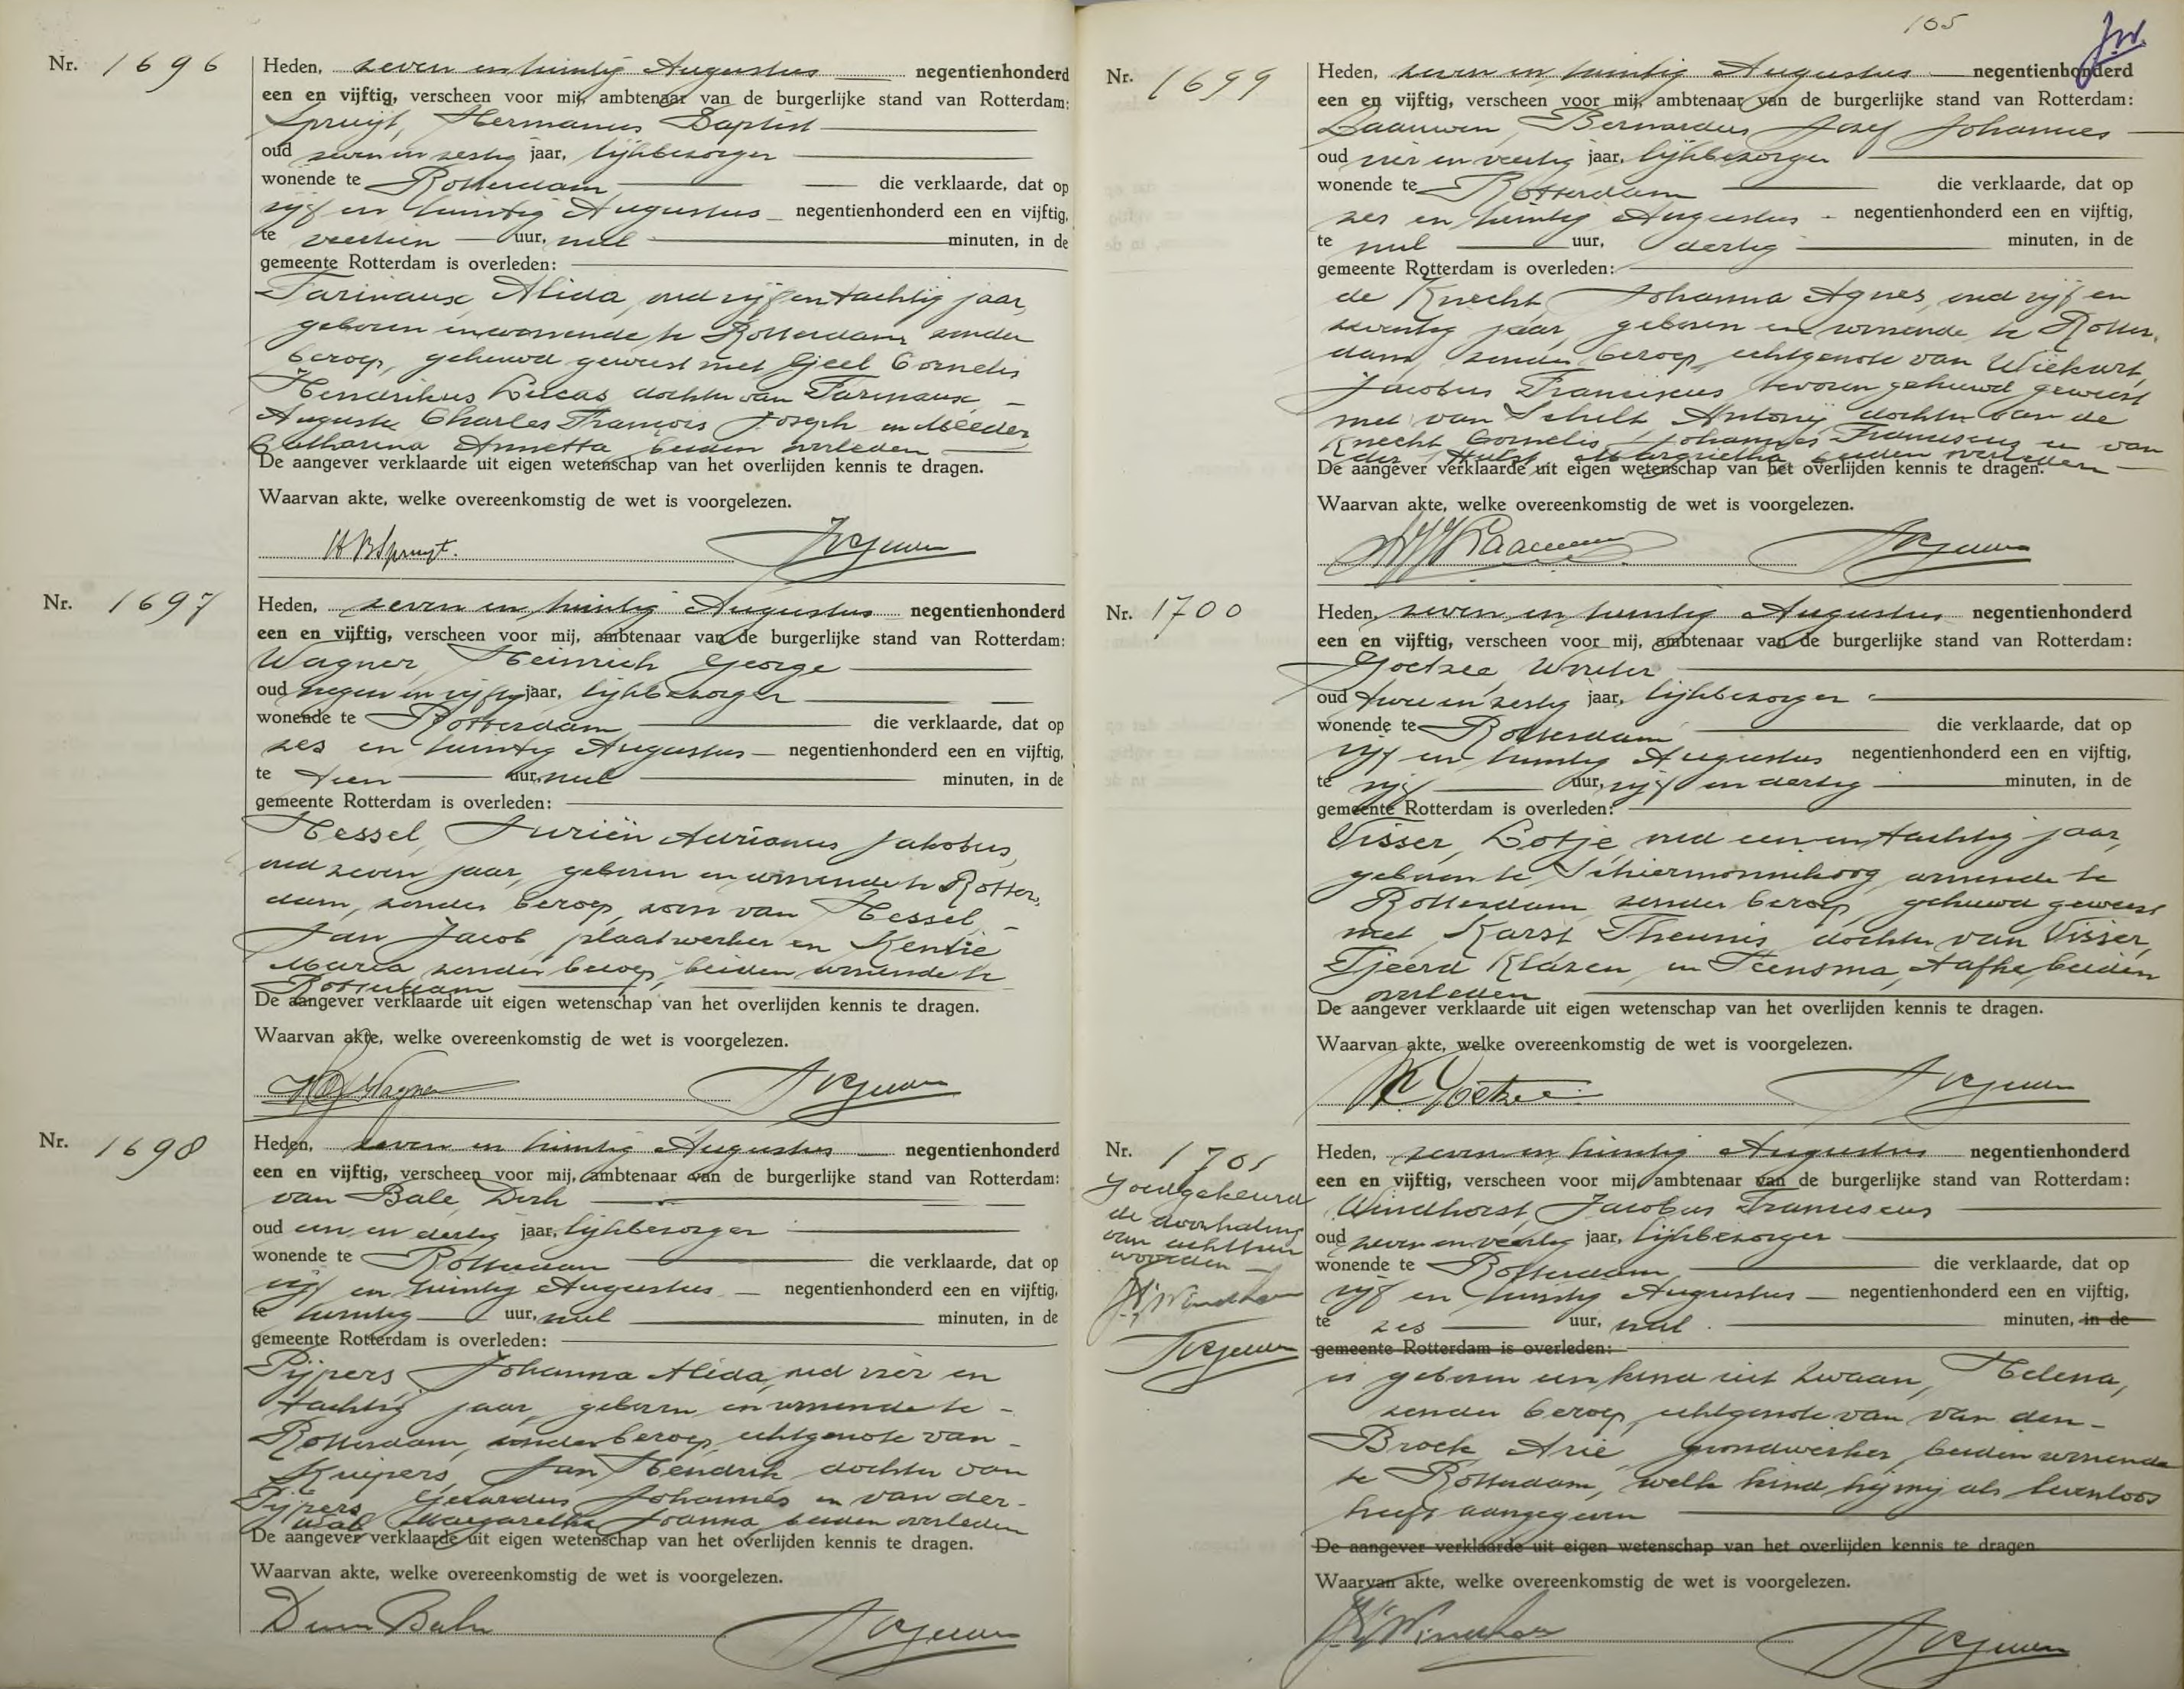 Nr. 1696
Heden, zeven en twintig Augustus negentienhonderd
een en vijftig, verscheen voor mij, ambtenaar van de burgerlijke stand van Rotterdam:
Spruijt, Hermanus Baptist
oud zeven en zestig jaar, lijkbezorger
wonende te Rotterdam die verklaarde, dat op
vijf en twintig Augustus negentienhonderd een en vijftig,
te veertien uur, nul minuten, in de
gemeente Rotterdam is overleden:
Farinaux, Alida, oud vijf en tachtig jaar,
geboren en wonende te Rotterdam, zonder
beroep, gehuwd geweest met Gjeel Cornelis
Hendrikus Lucas dochter van Farinaux,
Auguste Charles François Joseph en Meeder,
Catharina Annetta, beiden overleden
De aangever verklaarde uit eigen wetenschap van het overlijden kennis te dragen.
Waarvan akte, welke overeenkomstig de wet is voorgelezen.
HBSpruyt.
Nr. 1697
Heden, zeven en twintig Augustus negentienhonderd
een en vijftig, verscheen voor mij, ambtenaar van de burgerlijke stand van Rotterdam:
Wagner, Heinrich George
oud negen en vijftig jaar, lijkbezorger
wonende te Rotterdam die verklaarde, dat op
zes en twintig Augustus negentienhonderd een en vijftig,
te tien uur, nul minuten, in de
gemeente Rotterdam is overleden:
Hessel, Juriën Adrianus Jakobus,
oud zeven jaar, geboren en wonende te Rotter-
dam, zonder beroep, zoon van Hessel,
Jan Jacob, plaatwerker en Kentie
Maria, zonder beroep, beiden wonende te
Rotterdam
De aangever verklaarde uit eigen wetenschap van het overlijden kennis te dragen.
Waarvan akte, welke overeenkomstig de wet is voorgelezen.
HG Wagner
Nr. 1698
Heden, zeven en twintig Augustus negentienhonderd
een en vijftig, verscheen voor mij, ambtenaar van de burgerlijke stand van Rotterdam:
van Bale, Dirk
oud een en dertig jaar, lijkbezorger
wonende te Rotterdam die verklaarde, dat op
vijf en twintig Augustus negentienhonderd een en vijftig,
te twintig uur, nul minuten, in de
gemeente Rotterdam is overleden:
Pijpers, Johanna Alida, oud vier en
tachtig jaar, geboren en wonende te
Rotterdam, zonder beroep, echtgenote van
Kuipers, Jan Hendrik, dochter van
Pijpers, Gerardus Johannes en van der
Wal, Margaretha Joanna, beiden overleden
De aangever verklaarde uit eigen wetenschap van het overlijden kennis te dragen.
Waarvan akte, welke overeenkomstig de wet is voorgelezen.
D van Bale
165
Nr. 1699
Heden, zeven en twintig Augustus negentienhonderd
een en vijftig, verscheen voor mij, ambtenaar van de burgerlijke stand van Rotterdam:
Laauwen, Bernardus Jozef Johannes
oud vier en veertig jaar, lijkbezorger
wonende te Rotterdam die verklaarde, dat op
zes en twintig Augustus negentienhonderd een en vijftig,
te nul uur, dertig minuten, in de
gemeente Rotterdam is overleden:
de Knecht, Johanna Agnes, oud vijf en
zeventig jaar, geboren en wonende te Rotter-
dam, zonder beroep, echtgenote van Wiekart,
Jacobus Franciscus, tevoren gehuwd geweest
met van Schelt, Antonij, dochter van de
Knecht, Cornelis Johannes Franciscus en van
der Hulst, Margrietha, beiden overleden
De aangever verklaarde uit eigen wetenschap van het overlijden kennis te dragen.
Waarvan akte, welke overeenkomstig de wet is voorgelezen.
Nr. 1700
Heden, zeven en twintig Augustus negentienhonderd
een en vijftig, verscheen voor mij, ambtenaar van de burgerlijke stand van Rotterdam:
Goetzee, Wouter
oud twee en zestig jaar, lijkbezorger
wonende te Rotterdam die verklaarde, dat op
vijf en twintig Augustus negentienhonderd een en vijftig,
te vijf uur, vijf en dertig minuten, in de
gemeente Rotterdam is overleden:
Visser, Lotje, oud een en tachtig jaar,
geboren te Schiermonnikoog, wonende te
Rotterdam, zonder beroep, gehuwd geweest
met Karst Theunis, dochter van Visser,
Tjeerd Klazen, en Teensma, Aafke, beiden
overleden
De aangever verklaarde uit eigen wetenschap van het overlijden kennis te dragen.
Waarvan akte, welke overeenkomstig de wet is voorgelezen.
W. Goetzee
Nr. 1701
Goedgekeurd
de doorhaling
van achttien
woorden
Heden, zeven en twintig Augustus negentienhonderd
een en vijftig, verscheen voor mij, ambtenaar van de burgerlijke stand van Rotterdam:
Windhorst, Jacobus Franciscus
oud zeven en veertig jaar, lijkbezorger
wonende te Rotterdam die verklaarde, dat op
vijf en twintig Augustus negentienhonderd een en vijftig,
te zes uur, nul minuten, in de
gemeente Rotterdam is overleden:
is geboren een kind uit Zwaan, Helena,
zonder beroep, echtgenote van van den
Broek, Arie, grondwerker, beiden wonende
te Rotterdam, welk kind hij mij als levenloos
heeft aangegeven
De aangever verklaarde uit eigen wetenschap van het overlijden kennis te dragen
Waarvan akte, welke overeenkomstig de wet is voorgelezen.